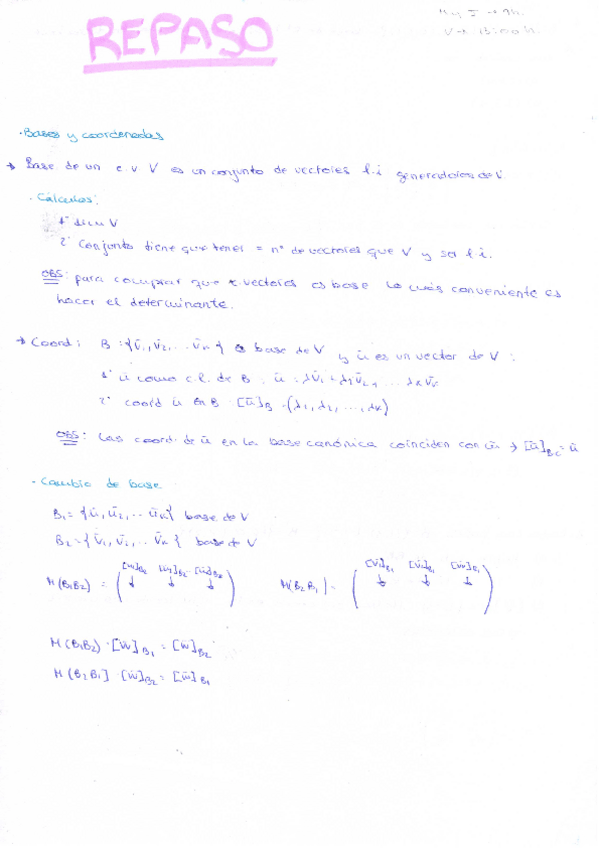 M y J → 9h.
V → 13:00h.
REPASO
· Bases y coordenadas
→ Base de un e.v V es un conjunto de vectores l.i generadores de V.
· Cálculos:
1º dim V
2º Conjunto tiene que tener = nº de vectores que V y ser l.i.
OBS: para comprar que x vectores es base lo más conveniente es
hacer el determinante.
→ Coord: B = {v̄₁, v̄₂, ... v̄ₖ} base de V y ū es un vector de V:
1º ū como c.l. de B : ū = λ₁v̄₁ + λ₂v̄₂ + ... λₖv̄ₖ
2º coord ū en B · [ū]_B = (λ₁, λ₂, ..., λₖ)
OBS: Las coord. de ū en la base canónica coinciden con ū → [ū]_Bc = ū
· Cambio de base
B₁ = {ū₁, ū₂, ... ūₖ} base de V
B₂ = {v̄₁, v̄₂, ... v̄ₖ} base de V
M(B₁B₂) = ( [ū₁]_B₂ [ū₂]_B₂ ... [ūₖ]_B₂ ↓ ↓ ↓ ) M(B₂B₁) = ( [v̄₁]_B₁ [v̄₂]_B₁ [v̄ₖ]_B₁ ↓ ↓ ↓ )
M(B₁B₂) · [w̄]_B₁ = [w̄]_B₂
M(B₂B₁) · [w̄]_B₂ = [w̄]_B₁